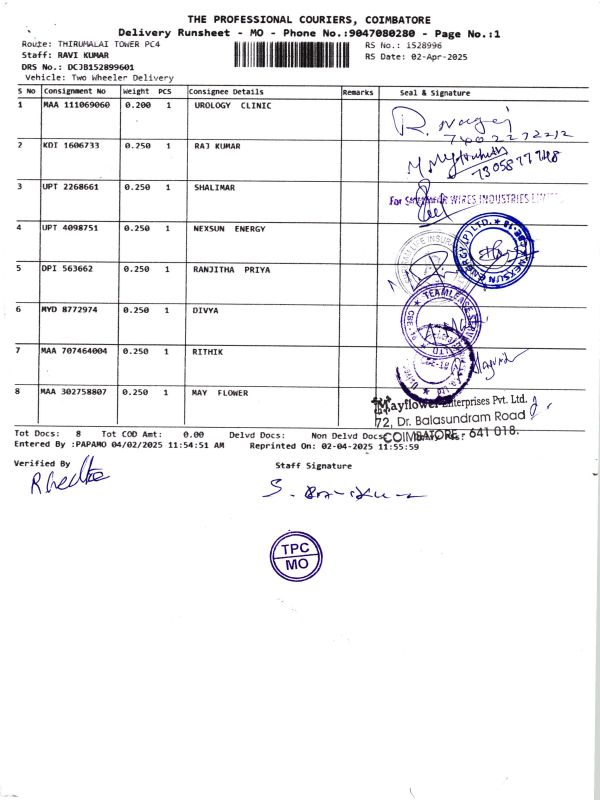 THE PROFESSIONAL COURIERS, COIMBATORE
Delivery Runsheet - MO - Phone No.:9047080280 - Page No.:1
Route: THIRUMALAI TOWER PC4
RS No.: 1528996
Staff: RAVI KUMAR
RS Date: 02-Apr-2025
DRS No.: DCJB152899601
Vehicle: Two Wheeler Delivery
S No Consignment No Weight PCS Consignee Details Remarks Seal & Signature
1 MAA 111069060 0.200 1 UROLOGY CLINIC
R. Nagaj
7402272212
2 KDI 1606733 0.250 1 RAJ KUMAR
7305877748
3 UPT 2268661 0.250 1 SHALIMAR
For WIRES INDUSTRIES
4 UPT 4098751 0.250 1 NEXSUN ENERGY
NEXSUN ENERGY (P) LTD. CBE-18
5 DPI 563662 0.250 1 RANJITHA PRIYA
LIFE INSUR
6 MYD 8772974 0.250 1 DIVYA
TEAMLEASE SERV LTD
7 MAA 707464004 0.250 1 RITHIK
8 MAA 302758807 0.250 1 MAY FLOWER
Mayflower Enterprises Pvt. Ltd.
72, Dr. Balasundram Road
COIMBATORE - 641 018.
Tot Docs: 8 Tot COD Amt: 0.00 Delvd Docs: Non Delvd Docs:
Entered By :PAPAMO 04/02/2025 11:54:51 AM Reprinted On: 02-04-2025 11:55:59
Verified By
Staff Signature
TPC
MO